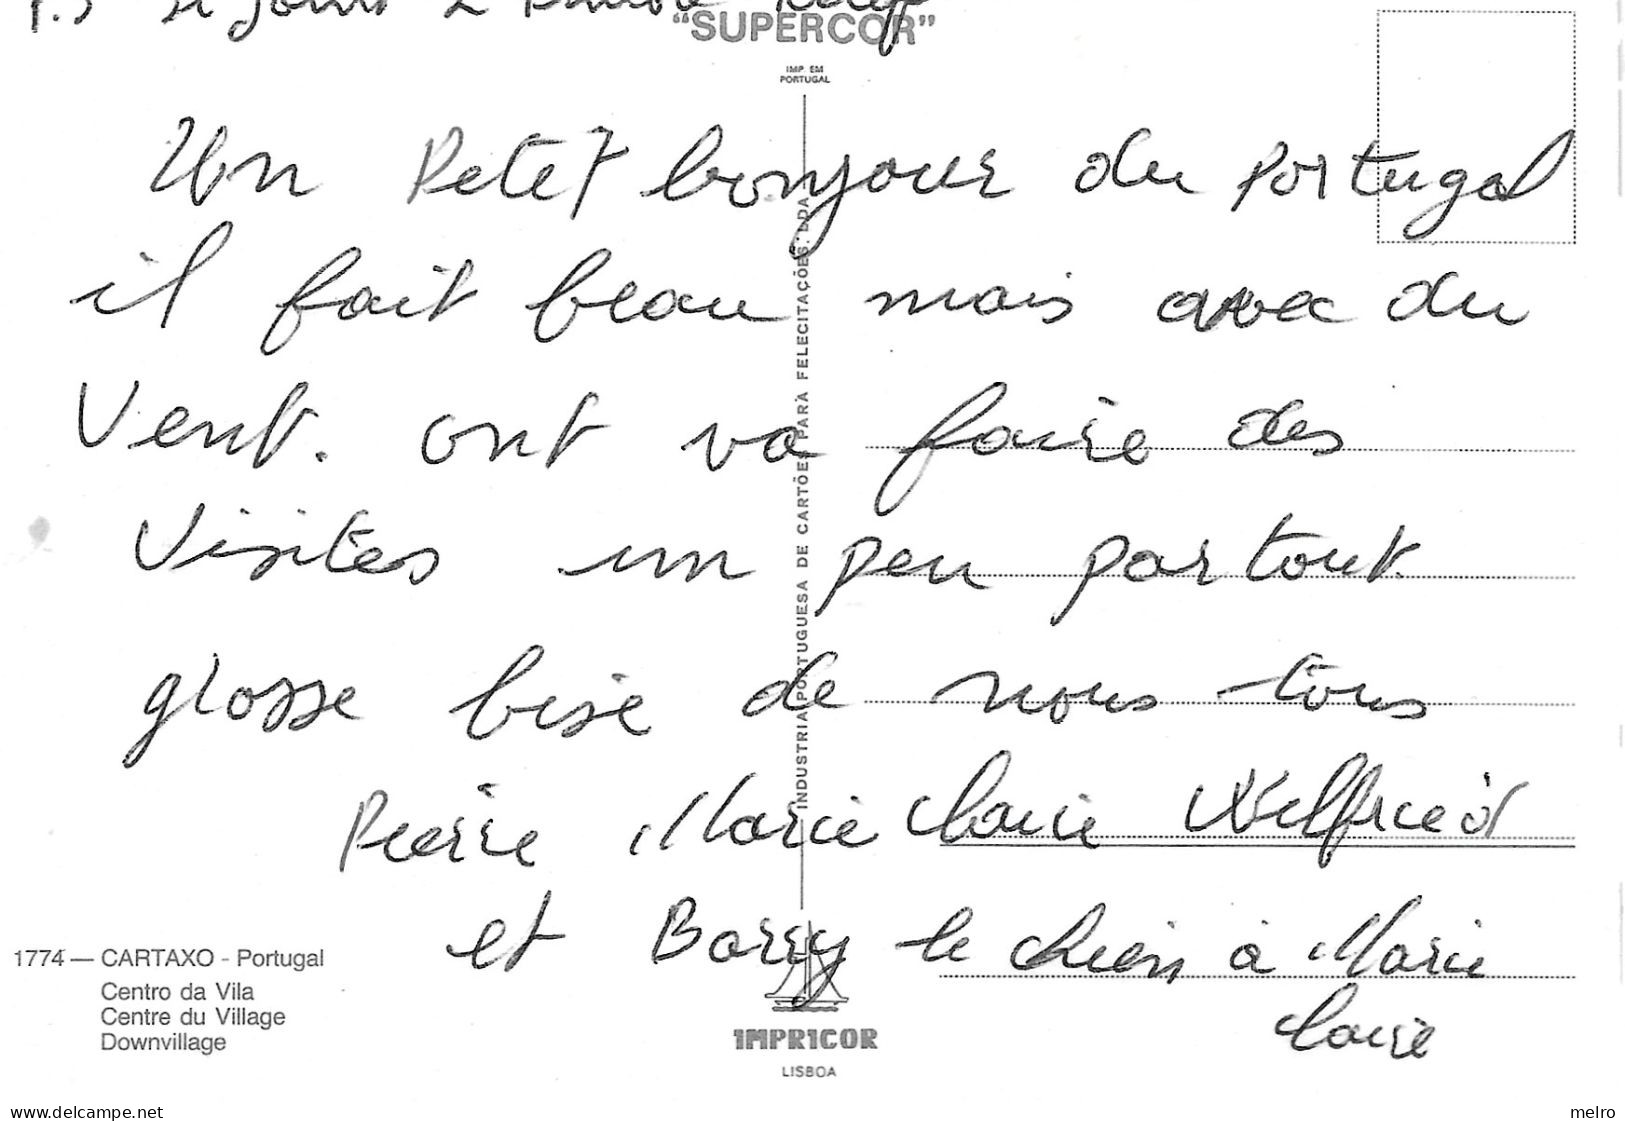 P.S
"SUPERCOR"
IMP. EM
PORTUGAL
Un Petit bonjour du Portugal
il fait beau mais avec du
Vent. ont va faire des
Visites un peu partout
grosse bise de nous tous
Pierre Marie Claire Wilfried
et Barry le chien à Marie
Claire
INDUSTRIA PORTUGUESA DE CARTÕES PARA FELECITAÇÕES, LDA
1774 — CARTAXO - Portugal
Centro da Vila
Centre du Village
Downvillage
IMPRICOR
LISBOA
www.delcampe.net
melro